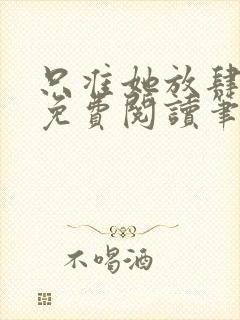 只准她放肆
免費閱讀筆
不喝酒